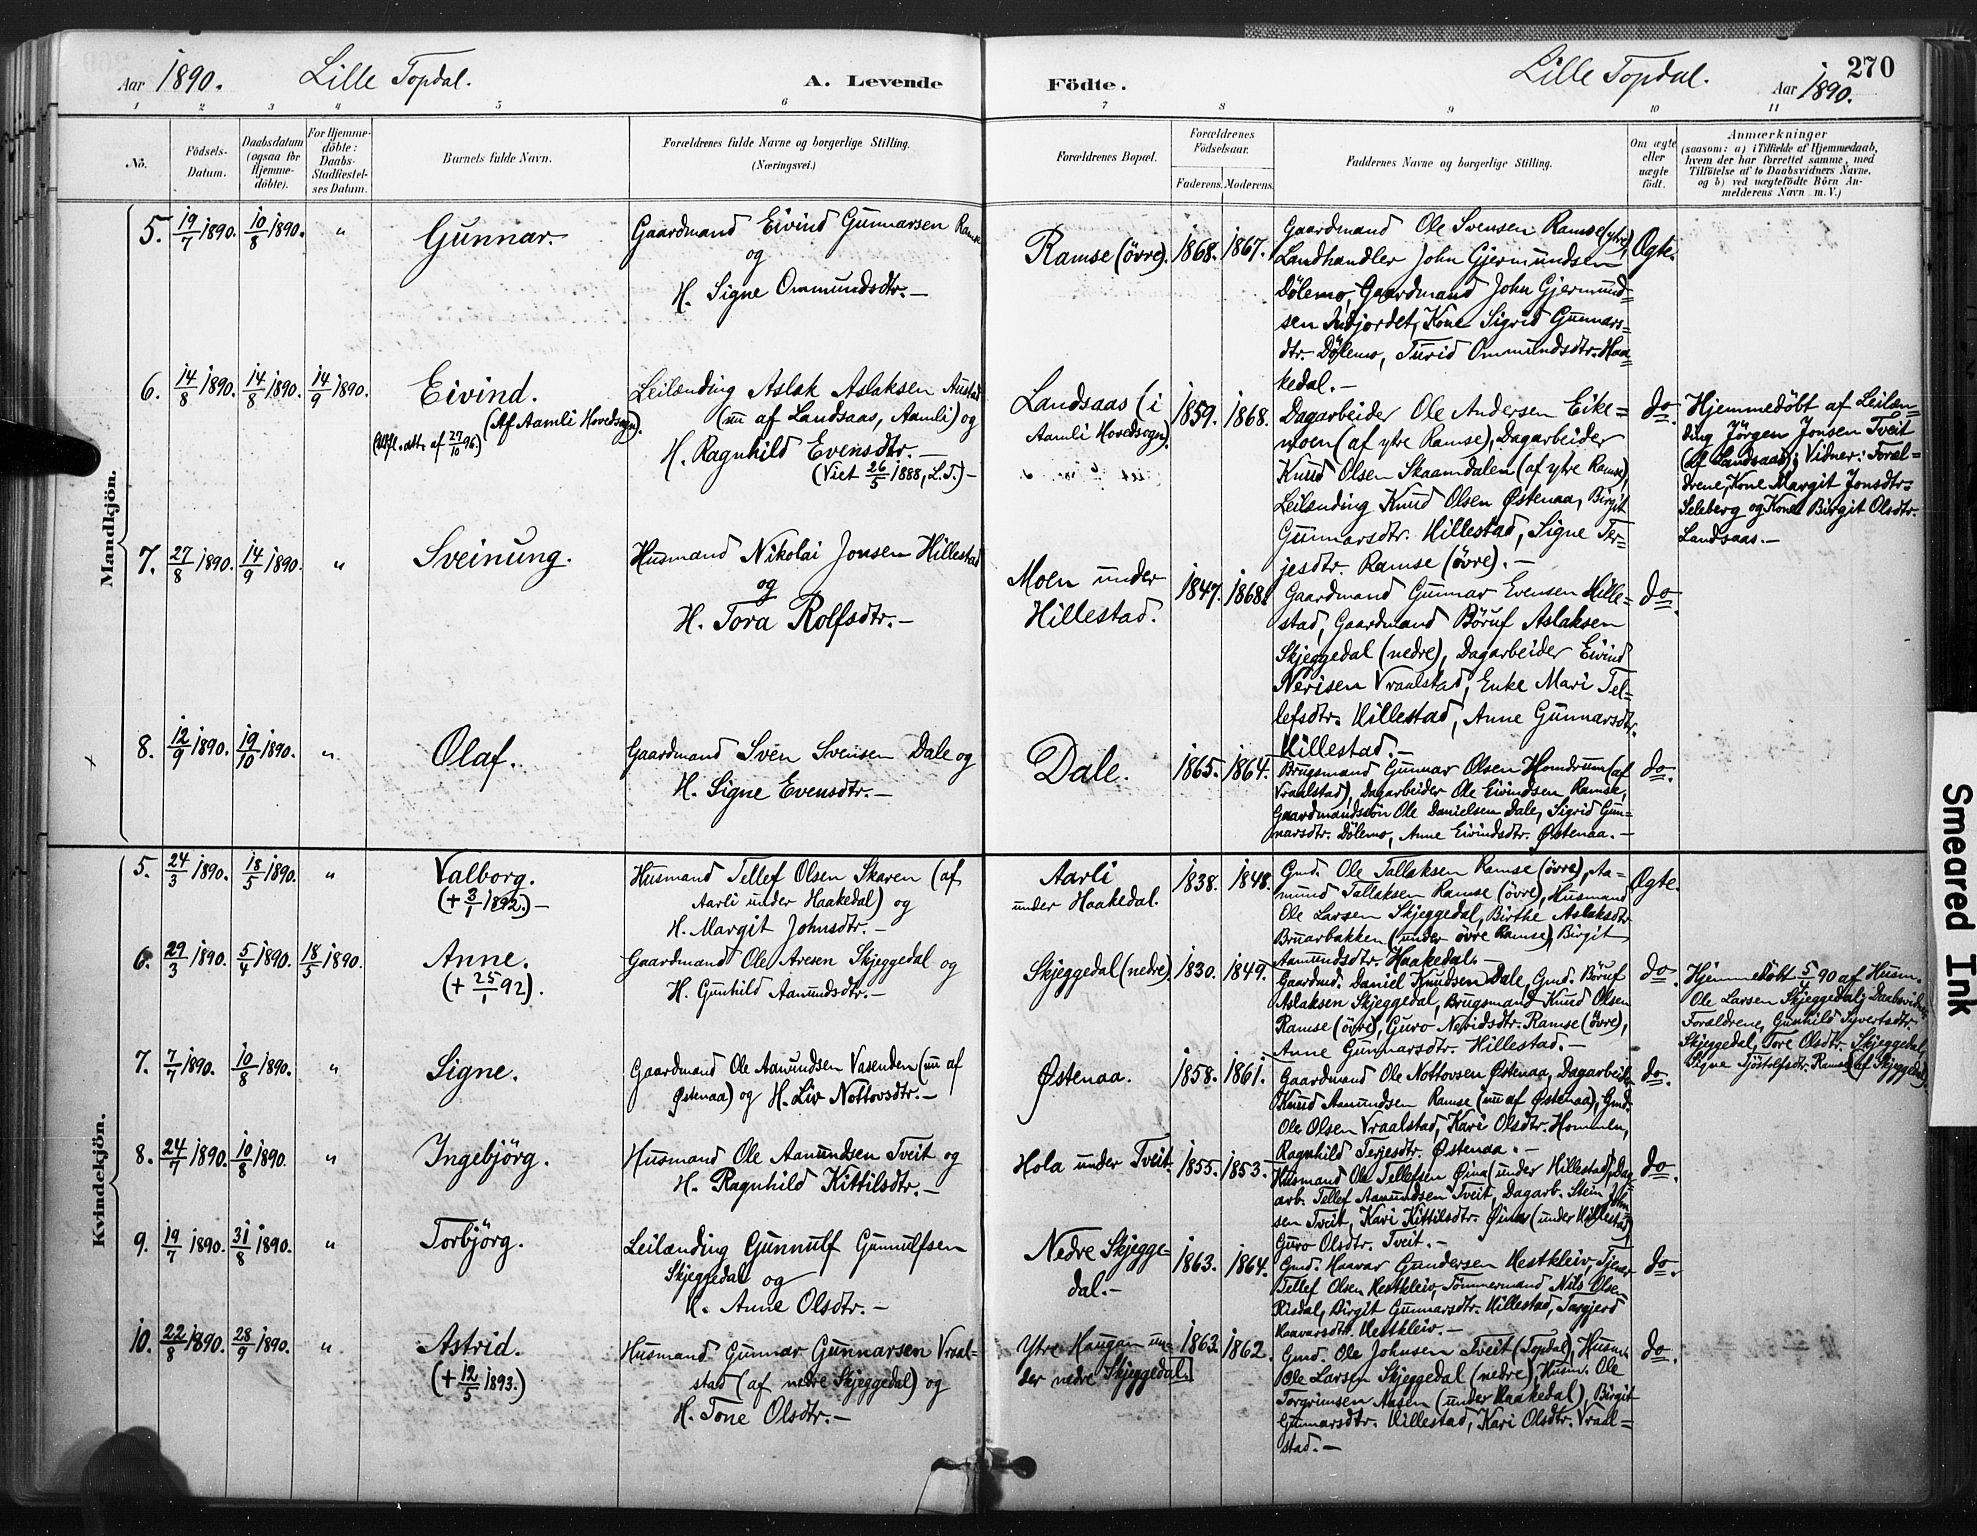 Aar 1890. Lille Topdal. A. Levende Födte. Lille Topdal. Aar 1890. 270
1 2 3 4 5 6 7 8 9 10 11
No. Födsels-Datum. Daabsdatum (ogsaa for Hjemme-döbte). For Hjemme-döbte: Daabs-Stadfæstel-ses Datum. Barnets fulde Navn. Forældrenes fulde Navne og borgerlige Stilling. (Næringsvei.) Forældrenes Bopæl. Forældrenes Födselsaar. Faderens. Moderens. Faddernes Navne og borgerlige Stilling. Om ægte eller uægte födt. Anmærkninger
(saasom: a) i Tilfælde af Hjemmedaab,
hvem der har forrettet samme, med
Tilföielse af to Daabsvidners Navne,
og b) ved uægtefödte Börn An-
melderens Navn m. V.)
Mandkjön.
5. 19/7 1890. 10/8 1890. " Gunnar.
Gaardmand Eivind Gunnarsen Ramse
og
H. Signe Ommundsdtr. —
Ramse (övre). 1868. 1867.
Gaardmand Ole Svensen Ramse (ytre),
Landhandler John Gjermundsen
Dölemo, Gaardmand John Gjermund=
sen Indjordet, Kone Sigrid Gunnars=
dtr. Dölemo, Turid Ommundsdtr. Haa=
kedal. —
Ægte.
6. 14/8 1890. 14/8 1890. 14/9 1890. Eivind.
(Af Aamli Hovedsogn).
(Udfl. att. af 27/10 96)
Leilænding Aslak Aslaksen Austad
(nu af Landsaas, Aamli) og
H. Ragnhild Evensdtr. —
(Viet 26/5 1888, L.T.) —
Landsaas (i
Aamli Hovedsogn).
1859. 1868.
Dagarbeider Ole Andersen Eike=
moen (af ytre Ramse), Dagarbeider
Knud Olsen Skaamdalen (af ytre Ramse),
Leilænding Knud Olsen Østenaa, Birgit
Gunnarsdtr. Hillestad, Signe Ter=
jesdtr. Ramse (övre). —
do.
Hjemmedöbt af Leilæn=
ding Jörgen Jonsen Tveit
(af Landsaas); Vidner: Foræl=
drene, Kone Margit Jonsdtr.
Seleberg og Kone Birgit Olsdtr.
Landsaas. —
7. 27/8 1890. 14/9 1890. " Sveinung.
Husmand Nikolai Jonsen Hillestad
og
H. Tora Rolfsdtr. —
Moen under
Hillestad.
1847. 1868.
Gaardmand Gunnar Evensen Hille=
stad, Gaardmand Böruf Aslaksen
Skjeggedal (nedre), Dagarbeider Eivind
Nerisen Vraalstad, Enke Mari Tel=
lefsdtr. Hillestad, Anne Gunnarsdtr.
Hillestad. —
do.
8. 12/9 1890. 19/10 1890. " Olaf.
Gaardmand Sven Svensen Dale og
H. Signe Evensdtr. —
Dale. 1865. 1864.
Brugsmand Gunnar Olsen Homdrum (af
Vraalstad), Dagarbeider Ole Eivindsen Ramse,
Gaardmandssön Ole Danielsen Dale, Sigrid Gun=
narsdtr. Dölemo, Anne Eivindsdtr. Østenaa. —
do.
Kvindekjön.
5. 24/3 1890. 18/5 1890. " Valborg.
(+ 3/1 1892.) —
Husmand Tellef Olsen Skaren (af
Aarli under Haakedal) og
H. Margit Johnsdtr. —
Aarli
under Haakedal.
1838. 1848.
Gmd. Ole Tallaksen Ramse (övre), Aa=
mund Tallaksen Ramse (övre), Husmand
Ole Larsen Skjeggedal, Birthe Aslaksdtr.
Bruarbakken (under övre Ramse), Birgit
Aamundsdtr. Haakedal. —
Ægte.
6. 29/3 1890. 5/4 1890. 18/5 1890. Anne.
(+ 25/1 92).
Gaardmand Ole Aresen Skjeggedal og
H. Gunhild Aamundsdtr. —
Skjeggedal (nedre). 1830. 1849.
Gaardmd. Daniel Knudsen Dale, Gmd. Böruf
Aslaksen Skjeggedal, Brugsmand Knud Olsen
Ramse (övre), Guro Neridsdtr. Ramse (övre),
Anne Gunnarsdtr. Hillestad. —
do.
Hjemmedöbt 5/4 90 af Husm.
Ole Larsen Skjeggedal; Daabsvidner:
Forældrene, Gunhild Syvertsdtr.
Skjeggedal, Tore Olsdtr. Skjeggedal,
Signe Tjöstolfsdtr. Ramse (af Skjeggedal).
7. 7/7 1890. 10/8 1890. " Signe.
Gaardmand Ole Aamundsen Vasenden (nu af
Østenaa) og H. Liv Nottovsdtr. —
Østenaa. 1858. 1861.
Gaardmand Ole Nottovsen Østenaa, Dagarbeider
Knud Aamundsen Ramse (nu af Østenaa), Gmd.
Ole Olsen Vraalstad, Kari Olsdtr. Hommen,
Ragnhild Terjesdtr. Østenaa. —
do.
8. 24/7 1890. 10/8 1890. " Ingebjörg.
Husmand Ole Aamundsen Tveit og
H. Ragnhild Kittilsdtr. —
Hola under Tveit. 1855. 1853.
Husmand Ole Tellefsen Øina (under Hillestad), Dag=
arb. Tellef Aamundsen Tveit, Dagarb. Stein John=
sen Tveit, Kari Kittilsdtr. Øina (under Hillestad),
Guro Olsdtr. Tveit. —
do.
9. 19/7 1890. 31/8 1890. " Torbjörg.
Leilænding Gunnulf Gunnulfsen
Skjeggedal og
H. Anne Olsdtr. —
Nedre Skjegge=
dal. —
1863. 1864.
Gmd. Haavar Gundersen Hestkleiv, Tjener
Tellef Olsen Hestkleiv, Tömmermand Nils Olsen
Risdal, Birgit Gunnarsdtr. Hillestad, Torgjerd
Haavarsdtr. Hestkleiv. —
do.
10. 22/8 1890. 28/9 1890. " Astrid.
(+ 12/5 1893.)
Husmand Gunnar Gunnarsen Vraal=
stad (af nedre Skjeggedal) og
H. Tone Olsdtr. —
Ytre Haugan un=
der nedre Skjeggedal.
1863. 1862.
Gmd. Ole Johnsen Tveit (Topdal), Husm.
Ole Larsen Skjeggedal (nedre), Husm. Ole
Torgrimsen Aasen (under Haakedal), Birgit
Gunnarsdtr. Hillestad, Kari Olsdtr. Vraal=
stad. —
do.
Smeared Ink